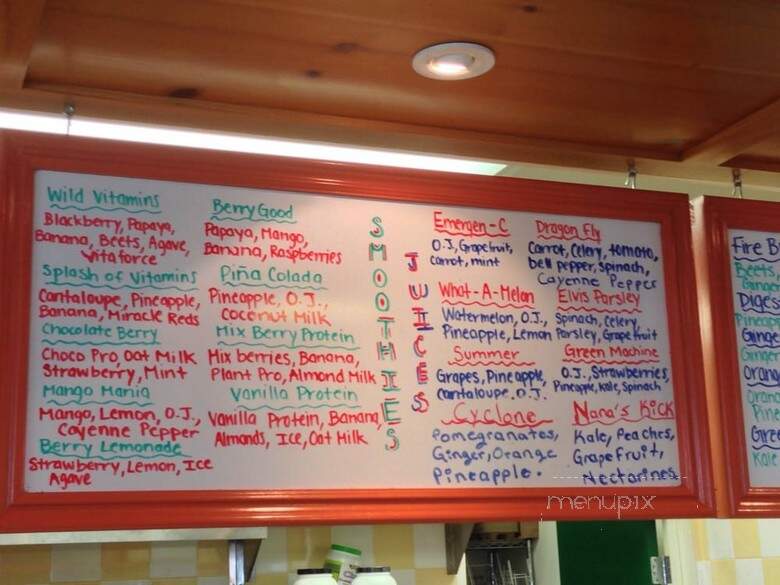 Wild Vitamins
Blackberry, Papaya,
Banana, Beets, Agave,
Vitaforce
Splash of Vitamins
Cantaloupe, Pineapple,
Banana, Miracle Reds
Chocolate Berry
Choco Pro, Oat Milk
Strawberry, Mint
Mango Mania
Mango, Lemon, O.J.,
Cayenne Pepper
Berry Lemonade
Strawberry, Lemon, Ice
Agave
Berry Good
Papaya, Mango,
Banana, Raspberries
Piña Colada
Pineapple, O.J.,
Coconut Milk
Mix Berry Protein
Mix berries, Banana,
Plant Pro, Almond Milk
Vanilla Protein
Vanilla Protein, Banana,
Almonds, Ice, Oat Milk
SMOOTHIES
JUICES
Emergen-C
O.J, Grapefruit,
Carrot, mint
What-A-Melan
Watermelon, O.J.,
Pineapple, Lemon
Summer
Grapes, Pineapple,
Cantaloupe, O.J.
Cyclone
Pomegranates,
Ginger, Orange
Pineapple.
Dragon Fly
Carrot, Celery, tomato,
bell pepper, spinach,
Cayenne Pepper
Elvis Parsley
Spinach, Celery,
Parsley, Grapefruit
Green Machine
O.J., Strawberries,
Pineapple, Kale, Spinach
Nana's Kick
Kale, Peaches,
Grapefruit,
Nectarines
Fire B
Beets
Ginge
Diges
Pineap
Ginge
Ginger
Orang
Oran
Pine
Gree
Kale
menupix